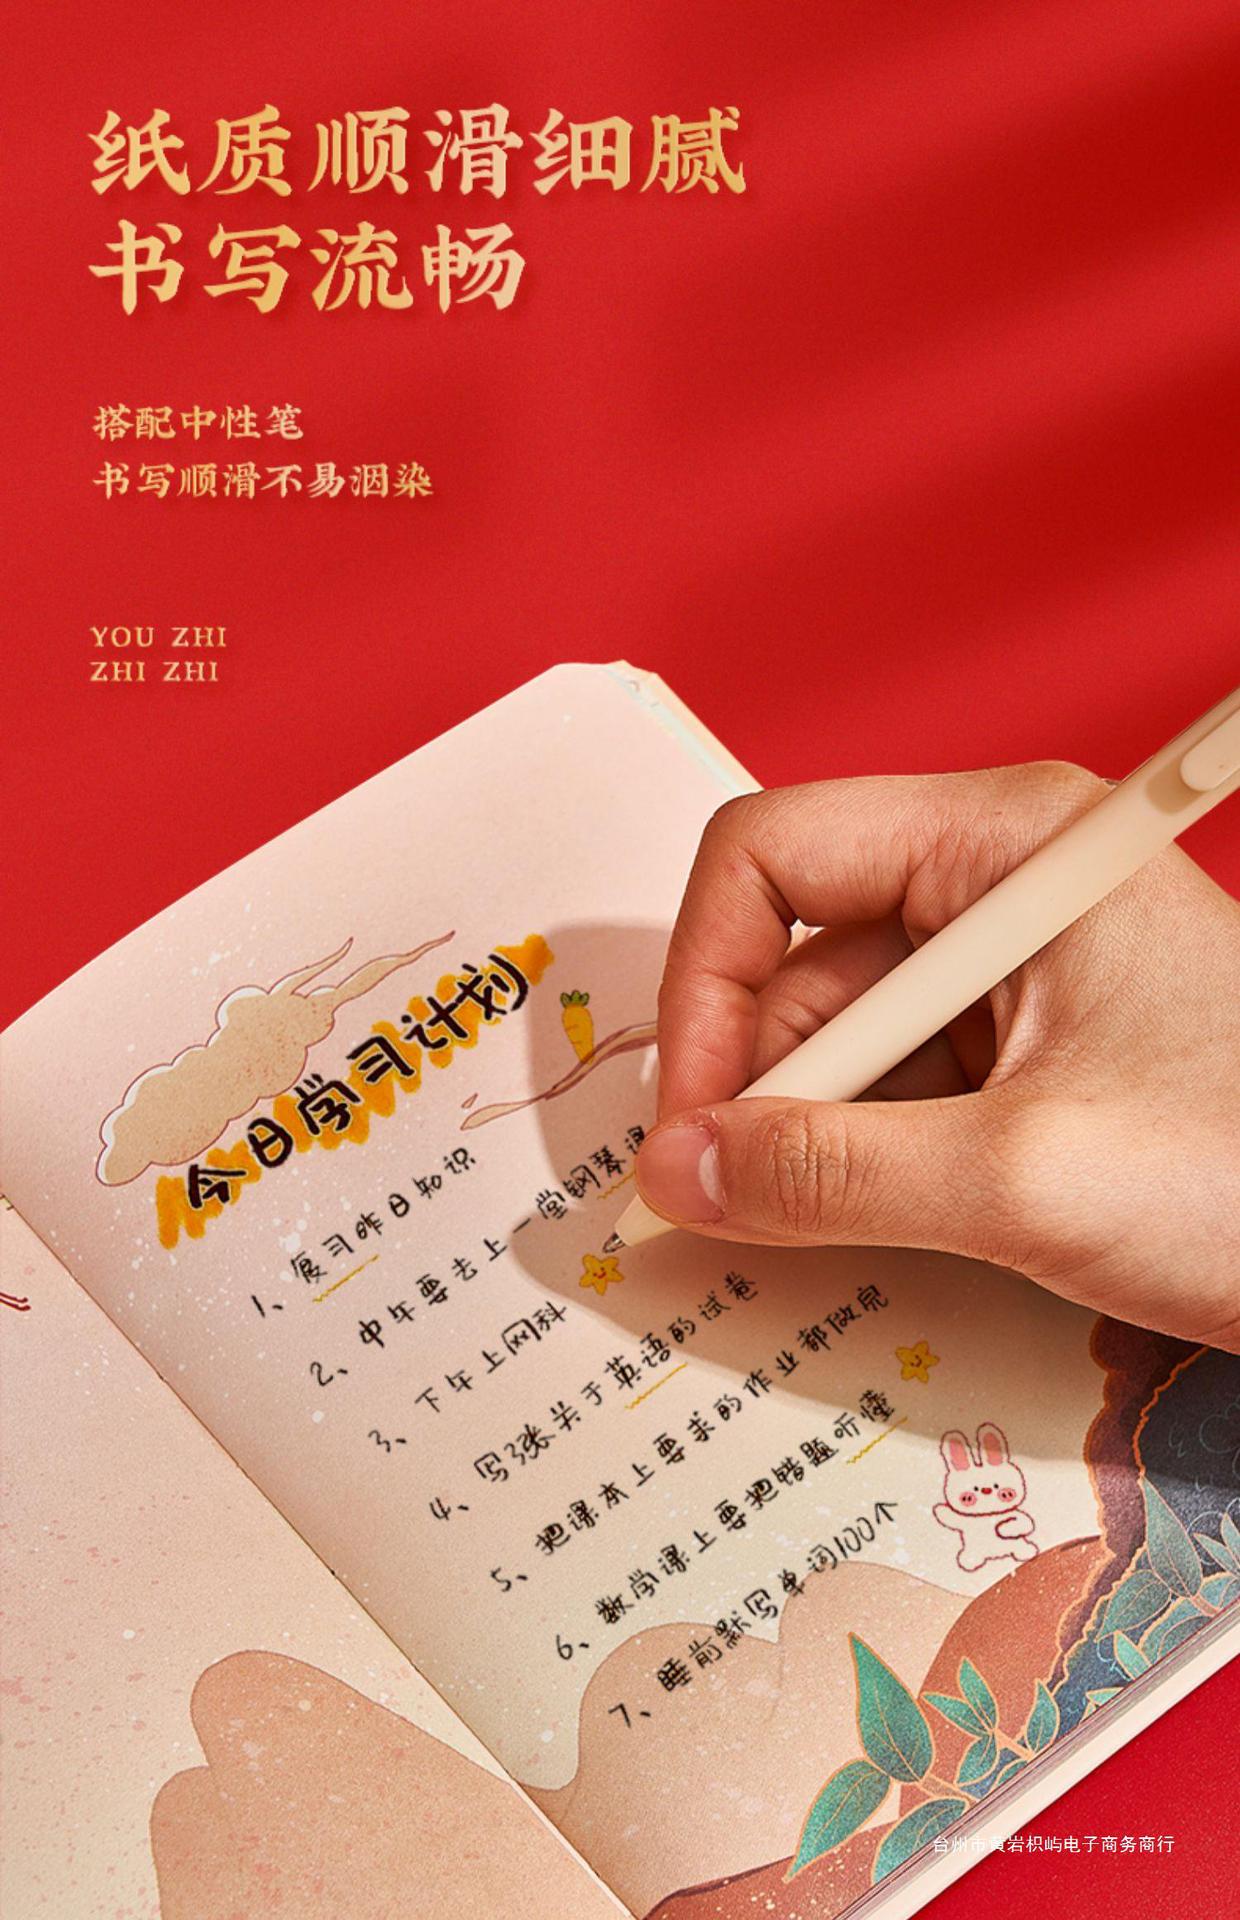 纸质顺滑细腻
书写流畅
搭配中性笔
书写顺滑不易洇染
YOU ZHI
ZHI ZHI
今日学习计划
1、复习昨日知识
2、中午要去上一堂钢琴课
3、下午上网科
4、写3张关于英语的试卷
5、把课本上要求的作业都做完
6、数学课上要把错题听懂
7、睡前默写单词100个
台州市黄岩枳屿电子商务商行